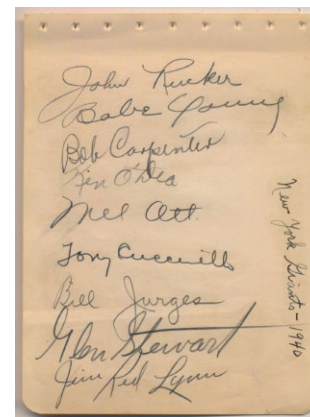 John Rucker
Babe Young
Bob Carpenter
Ken O'Dea
Mel Ott.
Tony Cuccinello
Bill Jurges
Glen Stewart
Jim Red Lynn
New York Giants - 1940